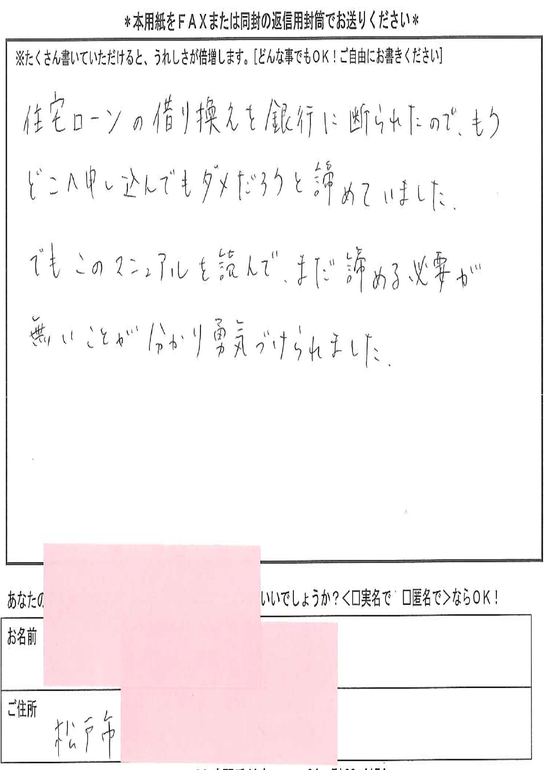 ＊本用紙をＦＡＸまたは同封の返信用封筒でお送りください＊
※たくさん書いていただけると、うれしさが倍増します。[どんな事でもＯＫ！ご自由にお書きください]
住宅ローンの借り換えを銀行に断られたので、もう
どこへ申し込んでもダメだろうと諦めていました。
でもこのマニュアルを読んで、まだ諦める必要が
無いことが分かり勇気づけられました。
あなたの
いいでしょうか？＜□実名で □匿名で＞ならＯＫ！
お名前
ご住所
松戸市